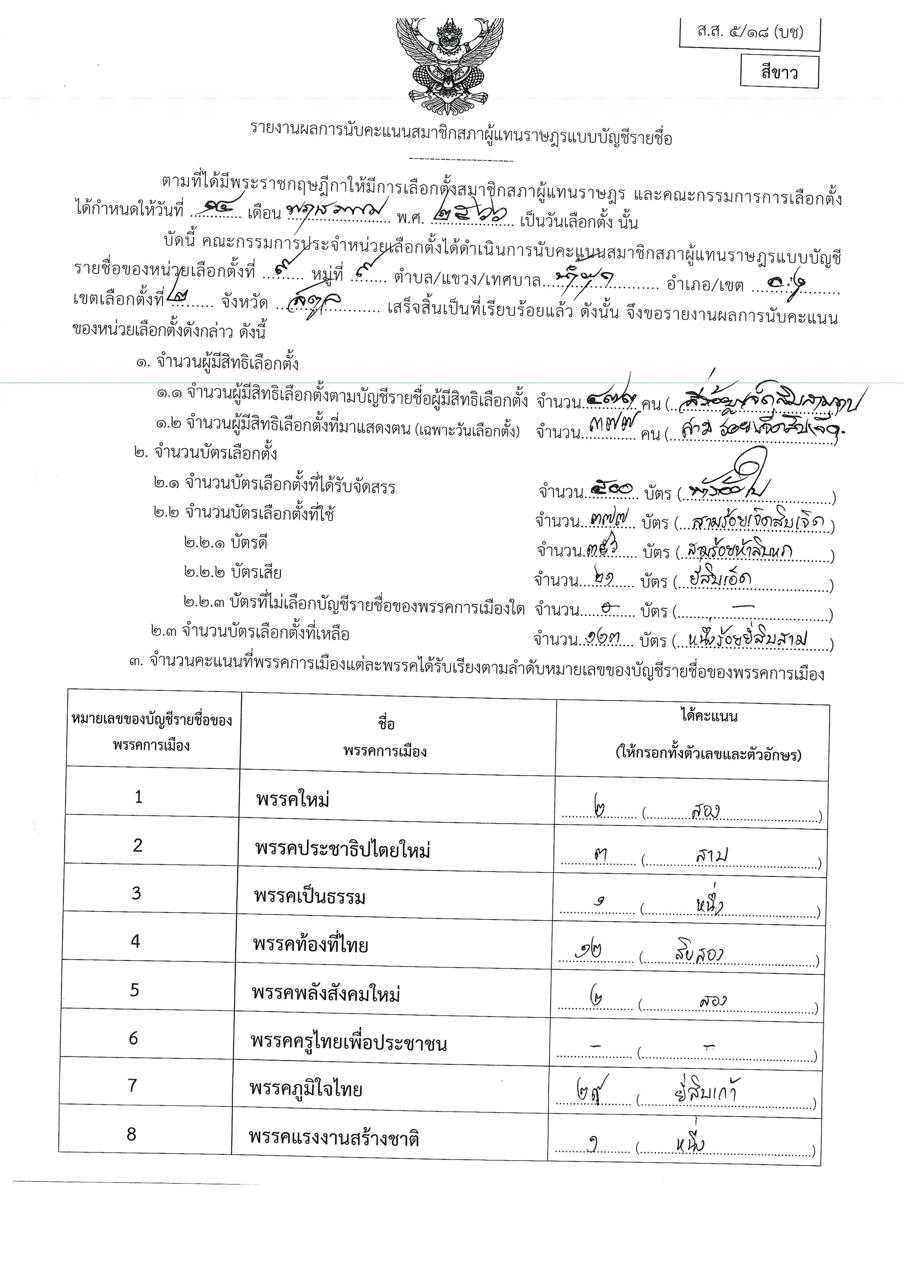 ส.ส. ๕/๑๘ (บช)
สีขาว
รายงานผลการนับคะแนนสมาชิกสภาผู้แทนราษฎรแบบบัญชีรายชื่อ
ตามที่ได้มีพระราชกฤษฎีกาให้มีการเลือกตั้งสมาชิกสภาผู้แทนราษฎร และคณะกรรมการการเลือกตั้ง
ได้กำหนดให้วันที่ ๑๔ เดือน พฤษภาคม พ.ศ. ๒๕๖๖ เป็นวันเลือกตั้ง นั้น
บัดนี้ คณะกรรมการประจำหน่วยเลือกตั้งได้ดำเนินการนับคะแนนสมาชิกสภาผู้แทนราษฎรแบบบัญชี
รายชื่อของหน่วยเลือกตั้งที่ ๙ หมู่ที่ ๙ ตำบล/แขวง/เทศบาล อำเภอ/เขต
เขตเลือกตั้งที่ ๒ จังหวัด สตูล เสร็จสิ้นเป็นที่เรียบร้อยแล้ว ดังนั้น จึงขอรายงานผลการนับคะแนน
ของหน่วยเลือกตั้งดังกล่าว ดังนี้
๑. จำนวนผู้มีสิทธิเลือกตั้ง
๑.๑ จำนวนผู้มีสิทธิเลือกตั้งตามบัญชีรายชื่อผู้มีสิทธิเลือกตั้ง จำนวน ๔๗๓ คน (สี่ร้อยเจ็ดสิบสาม
๑.๒ จำนวนผู้มีสิทธิเลือกตั้งที่มาแสดงตน (เฉพาะวันเลือกตั้ง) จำนวน ๓๗๗ คน (สามร้อยเจ็ดสิบเจ็ด)
๒. จำนวนบัตรเลือกตั้ง
๒.๑ จำนวนบัตรเลือกตั้งที่ได้รับจัดสรร จำนวน ๕๐๐ บัตร (ห้าร้อยใบ)
๒.๒ จำนวนบัตรเลือกตั้งที่ใช้ จำนวน ๓๗๗ บัตร (สามร้อยเจ็ดสิบเจ็ด)
๒.๒.๑ บัตรดี จำนวน ๓๕๖ บัตร (สามร้อยห้าสิบหก)
๒.๒.๒ บัตรเสีย จำนวน ๒๑ บัตร (ยี่สิบเอ็ด)
๒.๒.๓ บัตรที่ไม่เลือกบัญชีรายชื่อของพรรคการเมืองใด จำนวน บัตร ( - )
๒.๓ จำนวนบัตรเลือกตั้งที่เหลือ จำนวน ๑๒๓ บัตร (หนึ่งร้อยยี่สิบสาม)
๓. จำนวนคะแนนที่พรรคการเมืองแต่ละพรรคได้รับเรียงตามลำดับหมายเลขของบัญชีรายชื่อของพรรคการเมือง
หมายเลขของบัญชีรายชื่อของพรรคการเมือง ชื่อพรรคการเมือง ได้คะแนน (ให้กรอกทั้งตัวเลขและตัวอักษร)
1 พรรคใหม่ ๒ (สอง)
2 พรรคประชาธิปไตยใหม่ ๓ (สาม)
3 พรรคเป็นธรรม ๑ (หนึ่ง)
4 พรรคท้องที่ไทย ๑๒ (สิบสอง)
5 พรรคพลังสังคมใหม่ ๒ (สอง)
6 พรรคครูไทยเพื่อประชาชน - ( - )
7 พรรคภูมิใจไทย ๒๙ (ยี่สิบเก้า)
8 พรรคแรงงานสร้างชาติ ๑ (หนึ่ง)